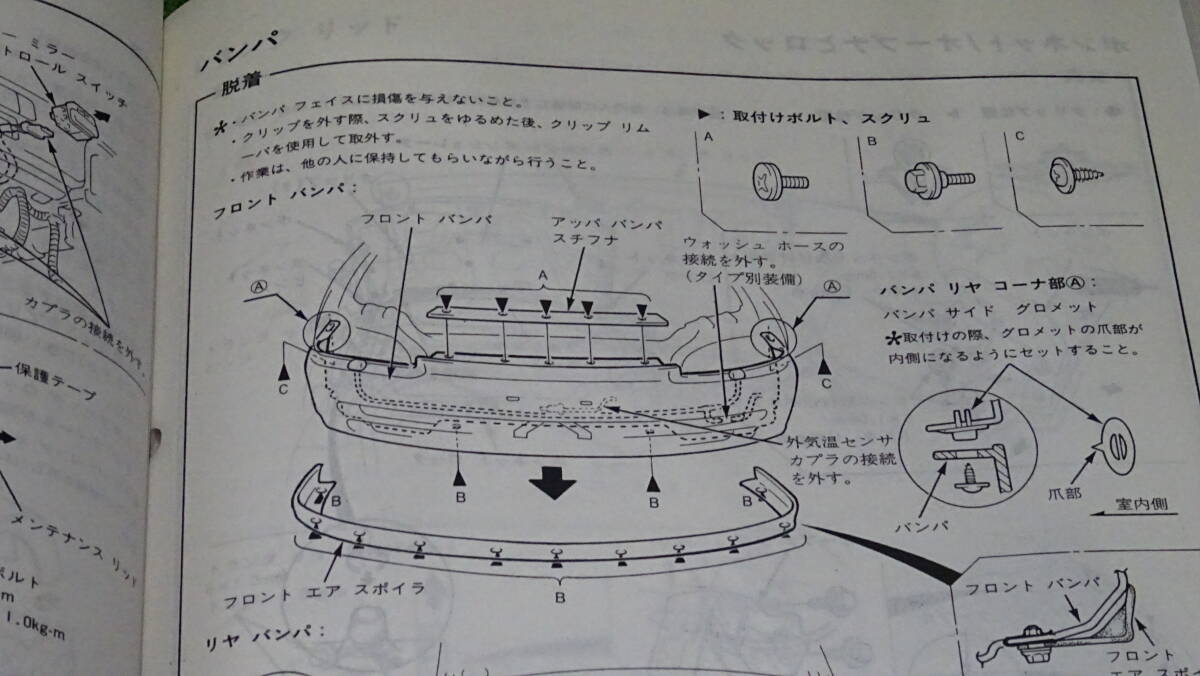 ミラー
トロール スイッチ
カプラの接続を外す。
保護テープ
メンテナンス リッド
ボルト
1.0kg-m
バンパ
脱着
*・バンパ フェイスに損傷を与えないこと。
・クリップを外す際、スクリュをゆるめた後、クリップ リム
ーバを使用して取外す。
・作業は、他の人に保持してもらいながら行うこと。
▶：取付けボルト、スクリュ
A
B
C
フロント バンパ：
フロント バンパ
アッパ バンパ
スチフナ
ウォッシュ ホースの
接続を外す。
(タイプ別装備)
A
Ⓐ
Ⓐ
C
C
B
B
外気温センサ
カプラの接続
を外す。
バンパ リヤ コーナ部Ⓐ：
バンパ サイド グロメット
*取付けの際、グロメットの爪部が
内側になるようにセットすること。
バンパ
爪部
室内側
B
B
B
フロント エア スポイラ
フロント バンパ
フロント
エア スポイ
リヤ バンパ：